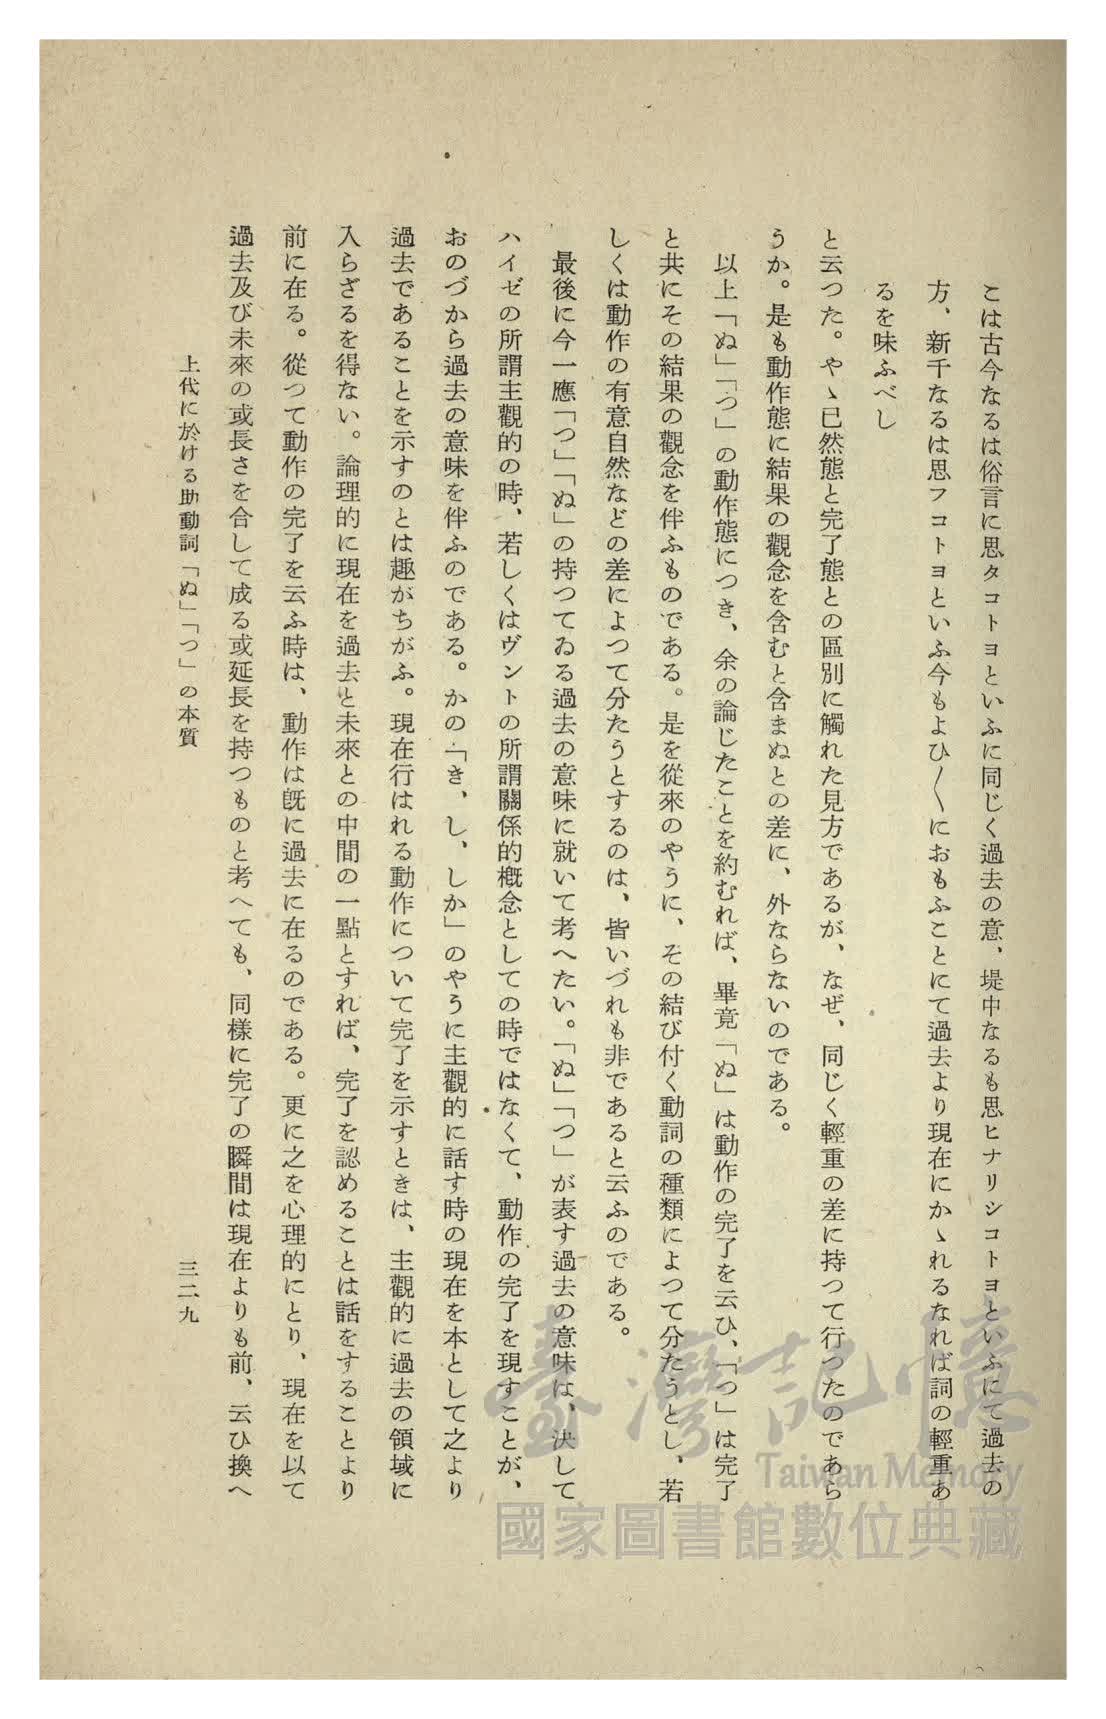 こは古今なるは俗言に思タコトヨといふに同じく過去の意、堤中なるも思ヒナリシコトヨといふにて過去の
方、新千なるは思フコトヨといふ今もよひ〳〵におもふことにて過去より現在にかゝれるなれば詞の輕重あ
るを味ふべし
と云つた。やゝ已然態と完了態との區別に觸れた見方であるが、なぜ、同じく輕重の差に持つて行つたのであら
うか。是も動作態に結果の觀念を含むと含まぬとの差に、外ならないのである。
以上「ぬ」「つ」の動作態につき、余の論じたことを約むれば、畢竟「ぬ」は動作の完了を云ひ、「つ」は完了
と共にその結果の觀念を伴ふものである。是を從來のやうに、その結び付く動詞の種類によつて分たうとし、若
しくは動作の有意自然などの差によつて分たうとするのは、皆いづれも非であると云ふのである。
最後に今一應「つ」「ぬ」の持つてゐる過去の意味に就いて考へたい。「ぬ」「つ」が表す過去の意味は、決して
ハイゼの所謂主觀的の時、若しくはヴントの所謂關係的槪念としての時ではなくて、動作の完了を現すことが、
おのづから過去の意味を伴ふのである。かの「き、し、しか」のやうに主觀的に話す時の現在を本として之より
過去であることを示すのとは趣がちがふ。現在行はれる動作について完了を示すときは、主觀的に過去の領域に
入らざるを得ない。論理的に現在を過去と未來との中間の一點とすれば、完了を認めることは話をすることより
前に在る。從つて動作の完了を云ふ時は、動作は旣に過去に在るのである。更に之を心理的にとり、現在を以て
過去及び未來の或長さを合して成る或延長を持つものと考へても、同樣に完了の瞬間は現在よりも前、云ひ換へ
上代に於ける助動詞「ぬ」「つ」の本質
三二九
臺灣記憶
Taiwan Memory
國家圖書館數位典藏